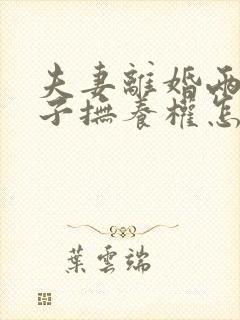 夫妻離婚兩
子撫養權怎
葉雲端